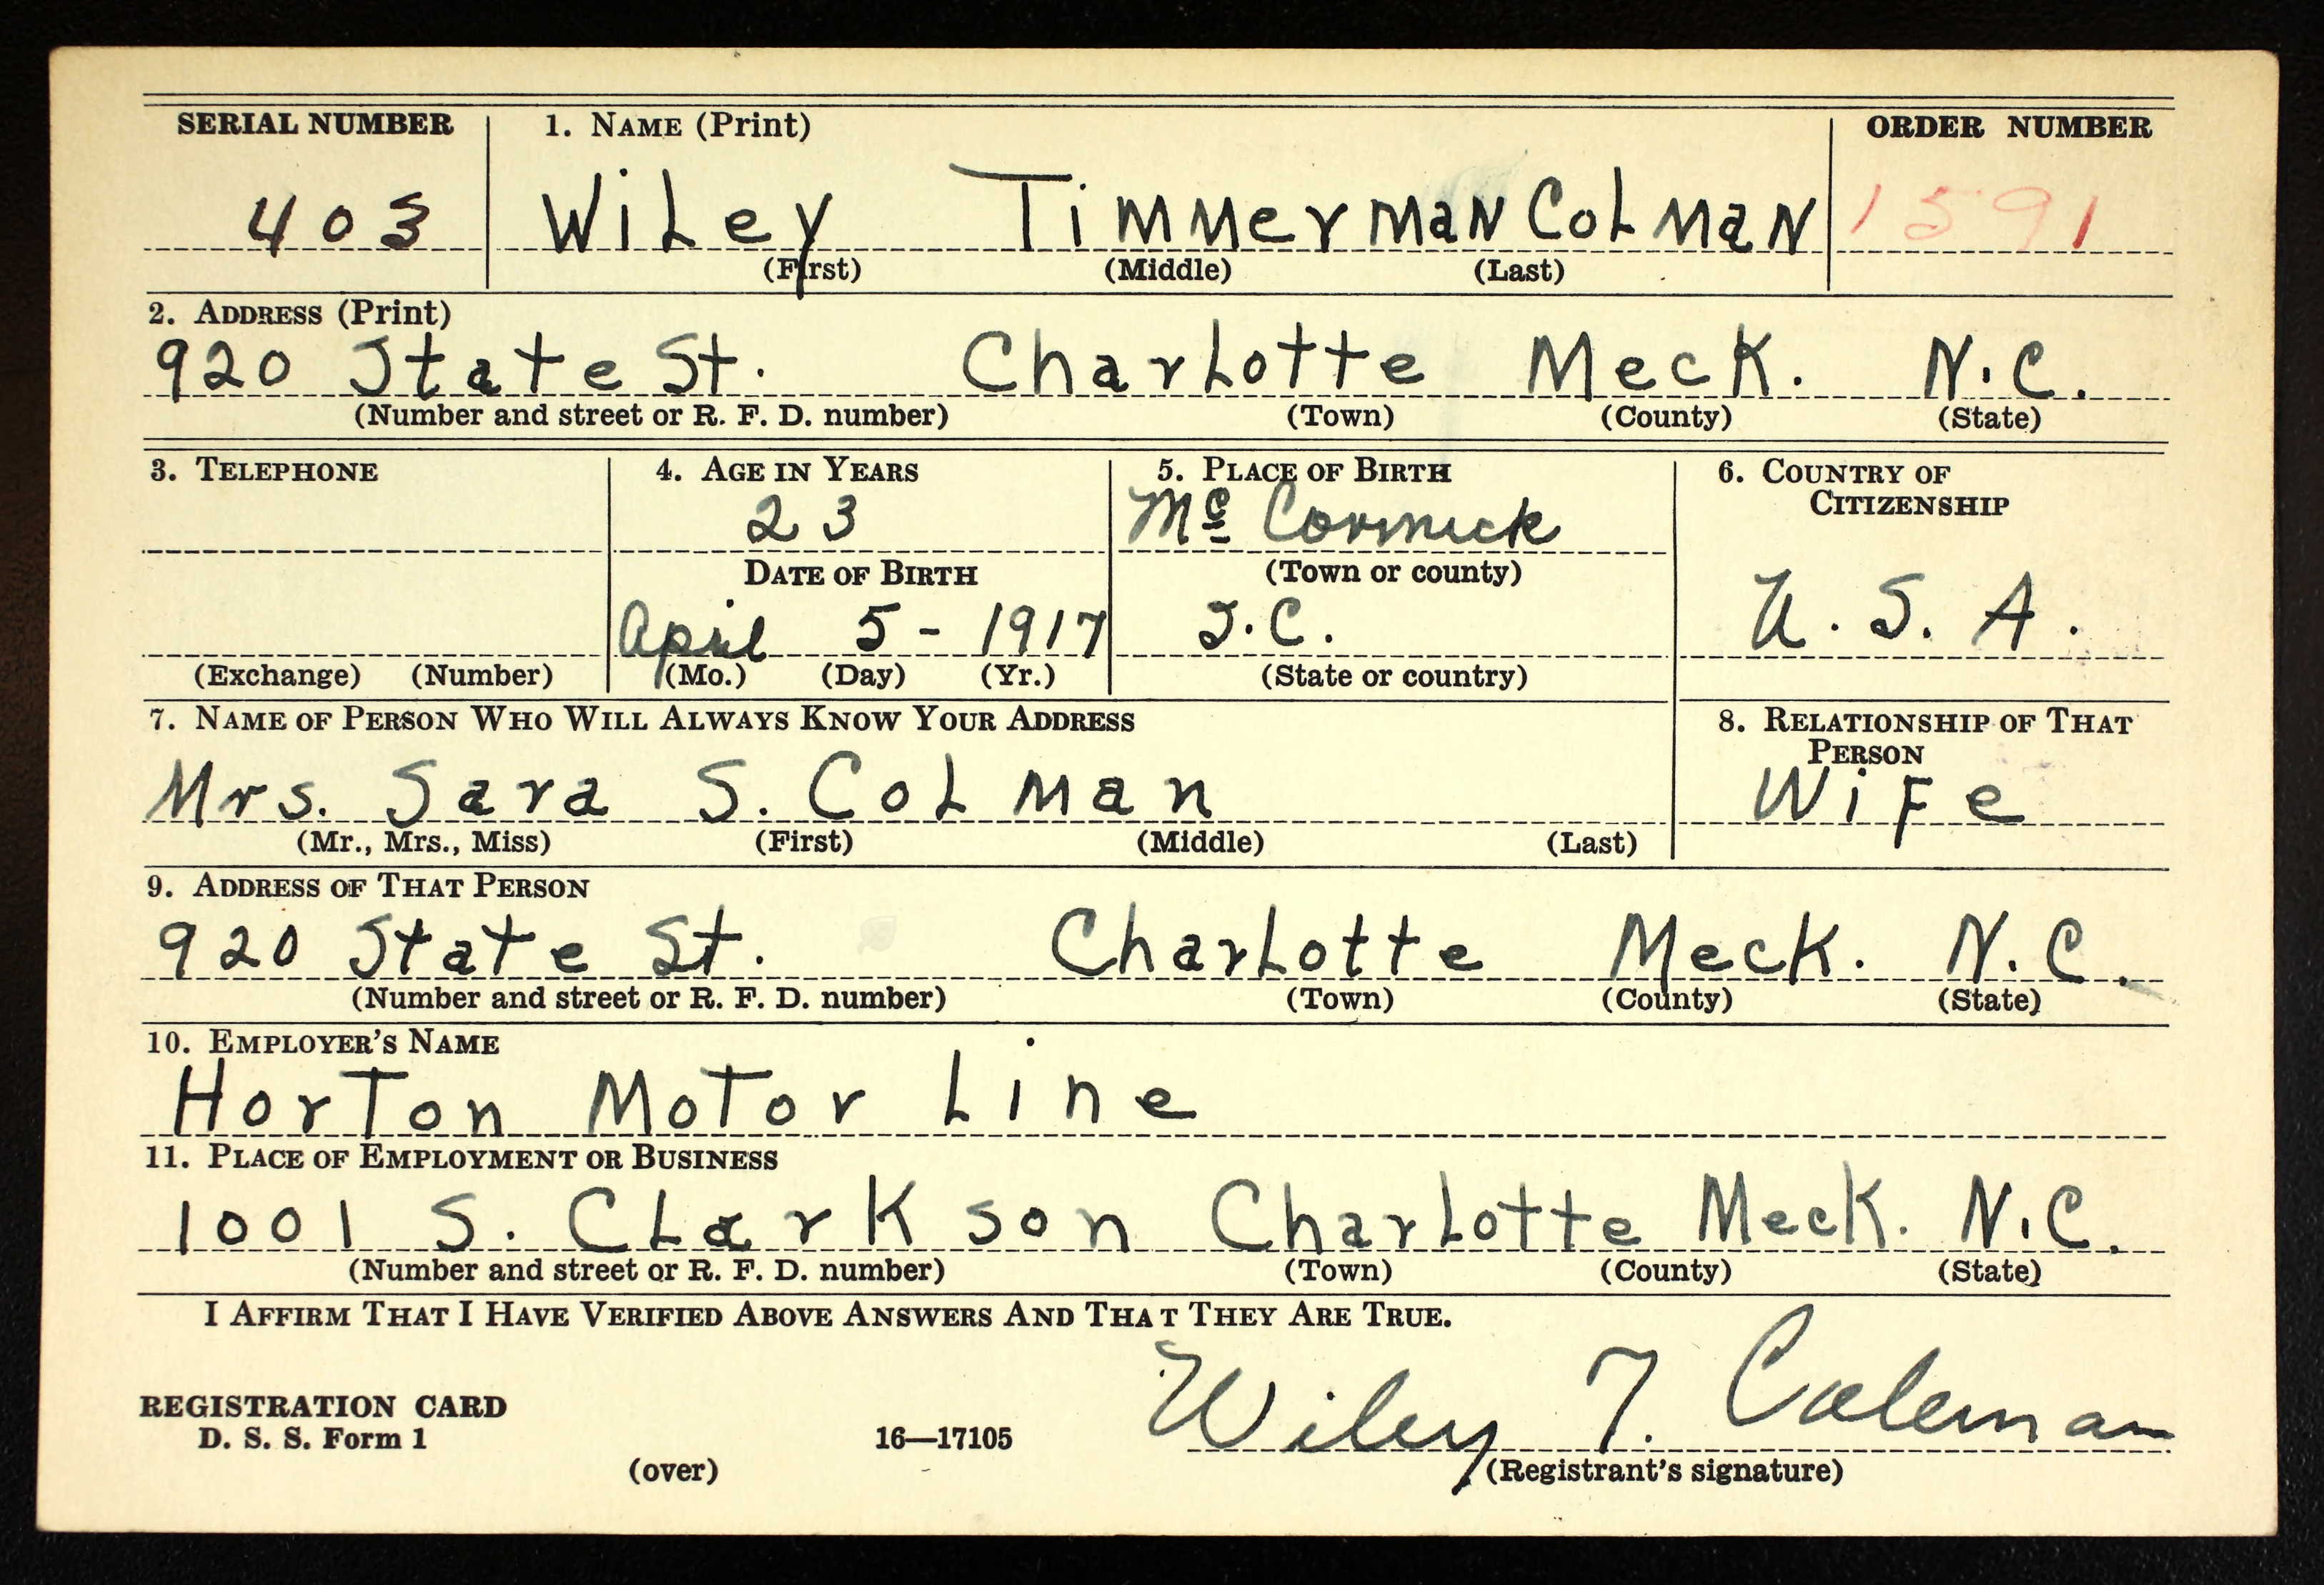 SERIAL NUMBER 1. NAME (Print) ORDER NUMBER
403 Wiley Timmerman Colman 1591
(First) (Middle) (Last)
2. ADDRESS (Print)
920 State St. Charlotte Meck. N.C.
(Number and street or R. F. D. number) (Town) (County) (State)
3. TELEPHONE 4. AGE IN YEARS 5. PLACE OF BIRTH 6. COUNTRY OF
CITIZENSHIP
23 Mc Cormick
DATE OF BIRTH (Town or county)
April 5 - 1917 S.C. U.S.A.
(Exchange) (Number) (Mo.) (Day) (Yr.) (State or country)
7. NAME OF PERSON WHO WILL ALWAYS KNOW YOUR ADDRESS 8. RELATIONSHIP OF THAT
PERSON
Mrs. Sara S. Colman Wife
(Mr., Mrs., Miss) (First) (Middle) (Last)
9. ADDRESS OF THAT PERSON
920 State St. Charlotte Meck. N.C.
(Number and street or R. F. D. number) (Town) (County) (State)
10. EMPLOYER'S NAME
Horton Motor Line
11. PLACE OF EMPLOYMENT OR BUSINESS
1001 S. Clarkson Charlotte Meck. N.C.
(Number and street or R. F. D. number) (Town) (County) (State)
I AFFIRM THAT I HAVE VERIFIED ABOVE ANSWERS AND THAT THEY ARE TRUE.
Wiley T. Coleman
REGISTRATION CARD
D. S. S. Form 1 16—17105
(over) (Registrant's signature)